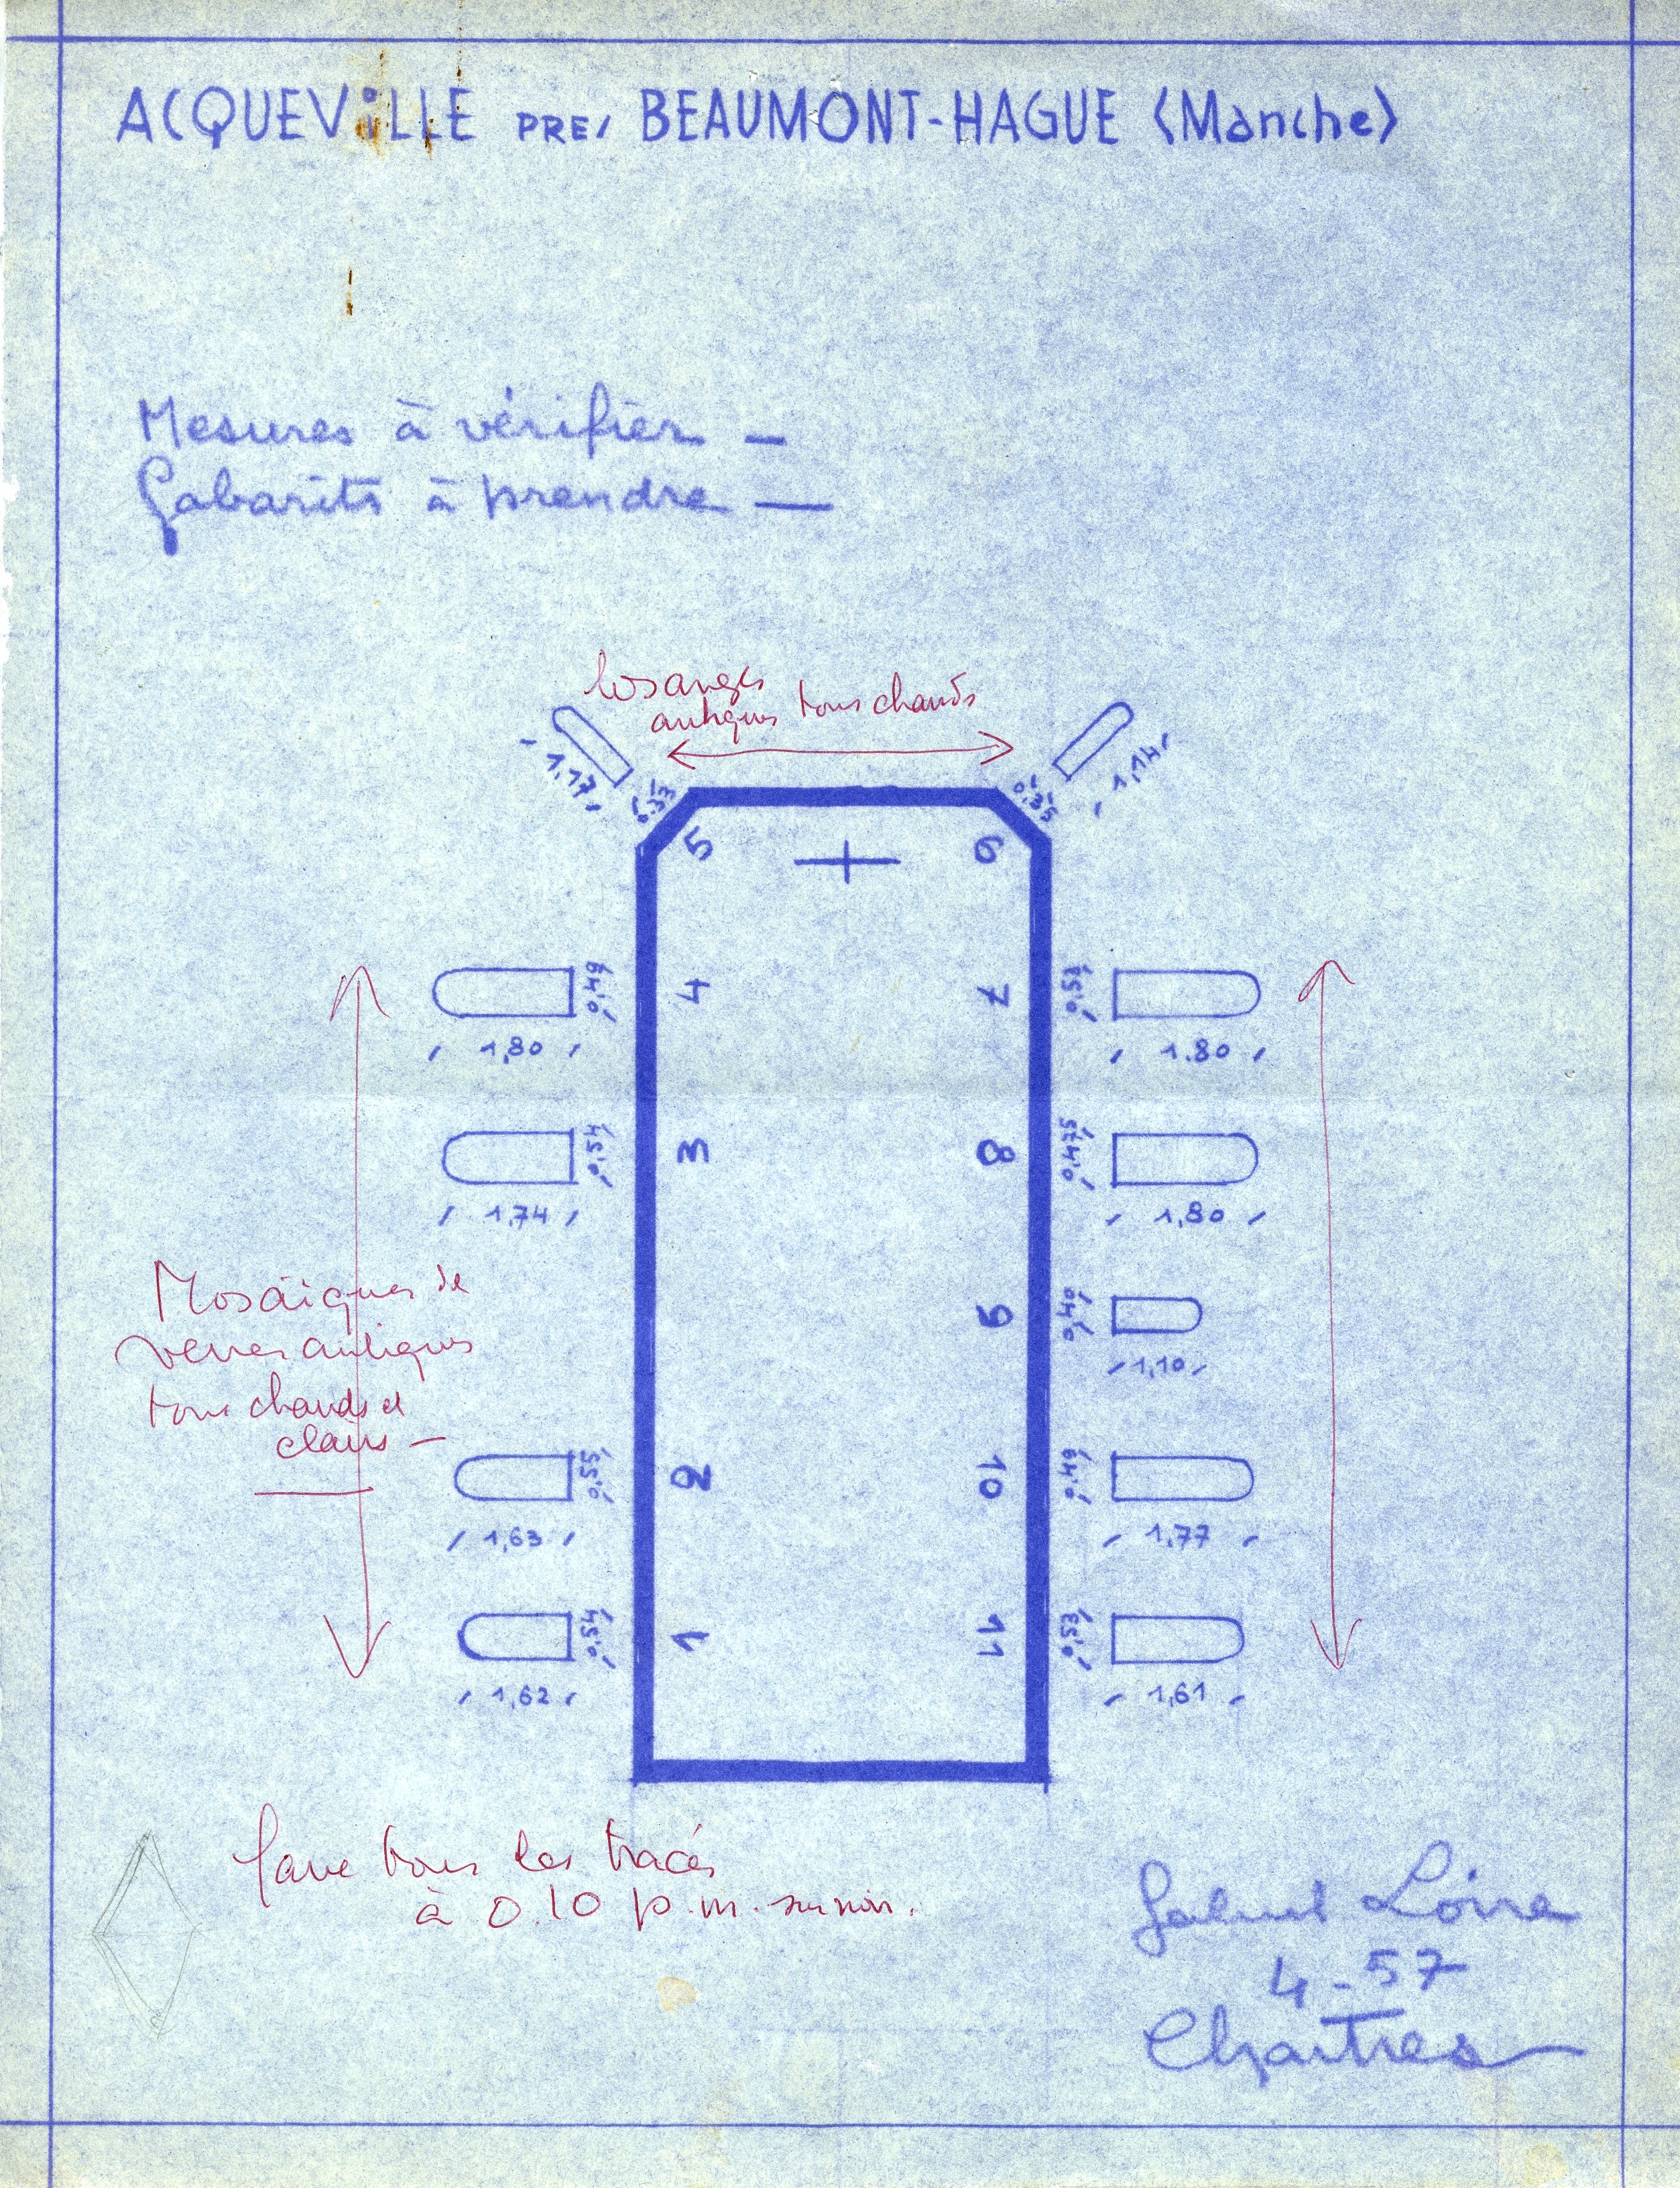 ACQUEViLLE PRES BEAUMONT-HAGUE (Manche)
Mesures à vérifier —
Gabarits à prendre —
losanges
antiques tons chauds
1,17
0,33
0,35
1,14
5
6
0,49
4
7
0,53
1,80
1.80
0,54
3
8
0,475
1,74
1,80
Mosaïques de
verres antiques
tons chauds et
clairs —
9
0,40
1,10
0,55
2
10
0,49
1,63
1,77
0,54
1
11
0,53
1,62
1,61
faire tous les tracés
à 0.10 p.m. sur noir.
Gabriel Loire
4-57
Chartres